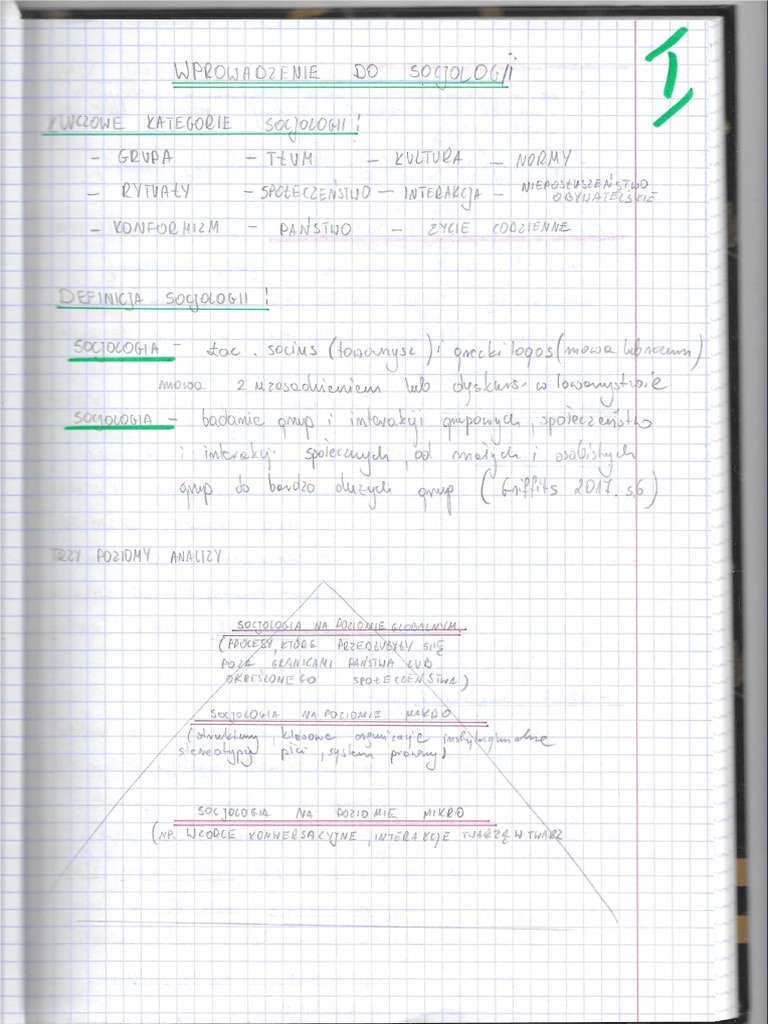 I
WPROWADZENIE DO SOCJOLOGII
KLUCZOWE KATEGORIE SOCJOLOGII!
- GRUPA - TŁUM - KULTURA - NORMY
- RYTUAŁY - SPOŁECZEŃSTWO - INTERAKCJA - NIEPOSŁUSZEŃSTWO OBYWATELSKIE
- KONFORMIZM - PAŃSTWO - ŻYCIE CODZIENNE
DEFINICJA SOCJOLOGII!
SOCJOLOGIA - łac. socius (towarzysz) i grecki logos (mowa lub rozum)
mowa z uzasadnieniem lub dyskurs w towarzystwie
SOCJOLOGIA - badanie grup i interakcji grupowych, społeczeństw
i interakcji społecznych, od małych i osobistych
grup do bardzo dużych grup (Griffits 2017. s6)
TRZY POZIOMY ANALIZY
SOCJOLOGIA NA POZIOMIE GLOBALNYM
(PROCESY, KTÓRE PRZEDZYBYBY SIĘ
POZA GRANICAMI PAŃSTWA LUB
OKREŚLONEGO SPOŁECZEŃSTWA)
SOCJOLOGIA NA POZIOMIE MAKRO
(struktury klasowe organizacje instytucjonalne
stereotypy płci, system prawny)
SOCJOLOGIA NA POZIOMIE MIKRO
(NP. WZORCE KONWERSACYJNE, INTERAKCJE TWARZĄ W TWARZ